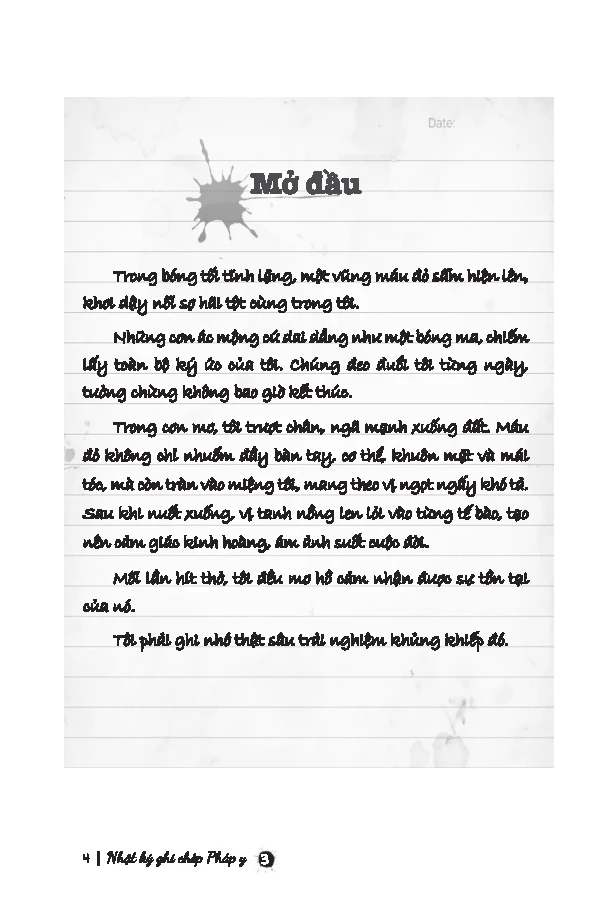 Date:
Mở đầu
Trong bóng tối tĩnh lặng, một vũng máu đỏ sẫm hiện lên,
khơi dậy nỗi sợ hãi tột cùng trong tôi.
Những cơn ác mộng cứ dai dẳng như một bóng ma, chiếm
lấy toàn bộ ký ức của tôi. Chúng đeo đuổi tôi từng ngày,
tưởng chừng không bao giờ kết thúc.
Trong cơn mơ, tôi trượt chân, ngã mạnh xuống đất. Máu
đỏ không chỉ nhuốm đầy bàn tay, cơ thể, khuôn mặt và mái
tóc, mà còn tràn vào miệng tôi, mang theo vị ngọt ngấy khó tả.
Sau khi nuốt xuống, vị tanh nồng len lỏi vào từng tế bào, tạo
nên cảm giác kinh hoàng, ám ảnh suốt cuộc đời.
Mỗi lần hít thở, tôi đều mơ hồ cảm nhận được sự tồn tại
của nó.
Tôi phải ghi nhớ thật sâu trải nghiệm khủng khiếp đó.
4 | Nhật ký ghi chép Pháp y 3